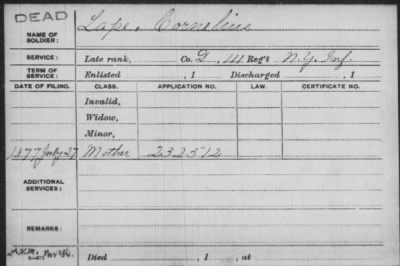 DEAD
NAME OF SOLDIER: Lape, Cornelius
SERVICE: Late rank, Co. D, 111 Reg't N.Y. Inf.
TERM OF SERVICE: Enlisted , 1 Discharged , 1
DATE OF FILING. CLASS. APPLICATION NO. LAW. CERTIFICATE NO.
Invalid,
Widow,
Minor,
1877 July 27 Mother 232512
ADDITIONAL SERVICES:
REMARKS:
Died , 1 , at